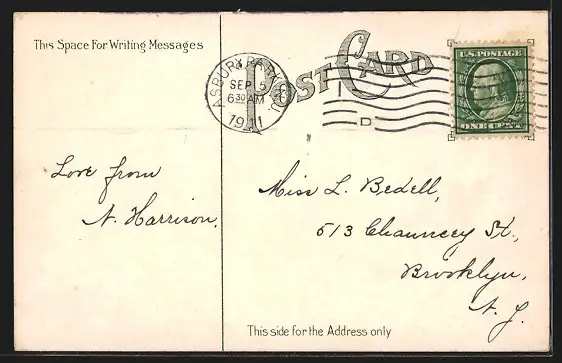 This Space For Writing Messages
POST CARD
ASBURY PARK, N.J.
SEP 5
6 30 AM
1911
D
U.S. POSTAGE
ONE CENT
Love from
N. Harrison,
Miss L. Bedell,
513 Chauncey St.,
Brooklyn,
N. Y.
This side for the Address only